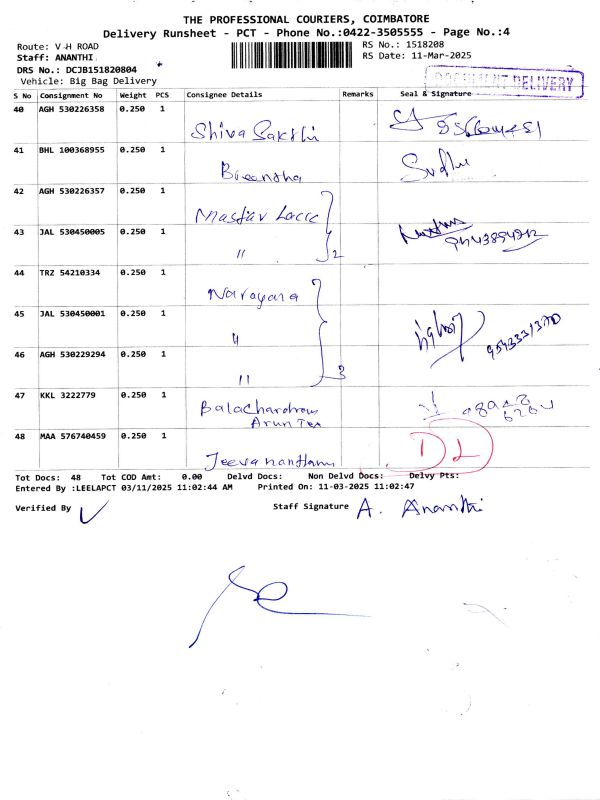 THE PROFESSIONAL COURIERS, COIMBATORE
Delivery Runsheet - PCT - Phone No.:0422-3505555 - Page No.:4
Route: V H ROAD RS No.: 1518208
Staff: ANANTHI. RS Date: 11-Mar-2025
DRS No.: DCJB151820804 *
Vehicle: Big Bag Delivery
DOCUMENT DELIVERY
S No Consignment No Weight PCS Consignee Details Remarks Seal & Signature
40 AGH 530226358 0.250 1
Shiva Sakthi
41 BHL 100368955 0.250 1
Sudhu
42 AGH 530226357 0.250 1
43 JAL 530450005 0.250 1
" 2
44 TRZ 54210334 0.250 1
Narayana
45 JAL 530450001 0.250 1
"
46 AGH 530229294 0.250 1
" 3
47 KKL 3222779 0.250 1
Arun Tex
48 MAA 576740459 0.250 1
DL
Jeevanantham
Tot Docs: 48 Tot COD Amt: 0.00 Delvd Docs: Non Delvd Docs: Delvy Pts:
Entered By :LEELAPCT 03/11/2025 11:02:44 AM Printed On: 11-03-2025 11:02:47
Verified By Staff Signature A. Ananthi